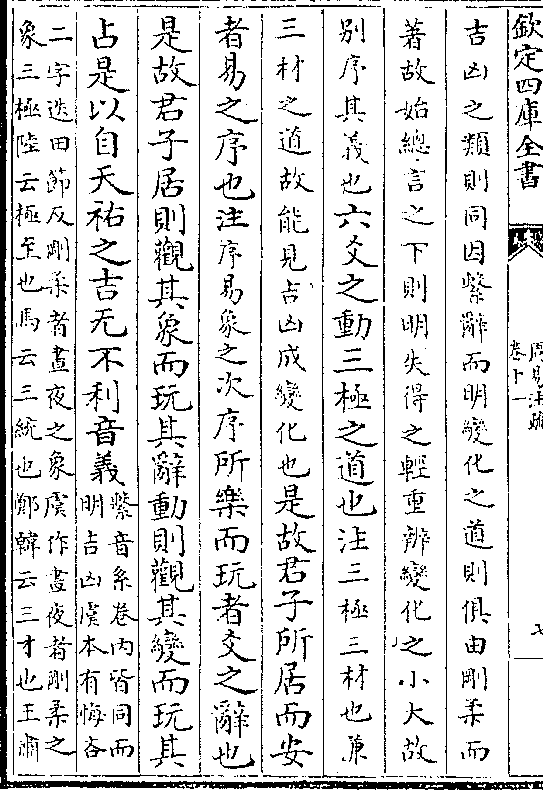 欽定四庫全書
周易注疏
卷十一
七
吉凶之類則同因繫辭而明變化之道則俱由剛柔而
著故始總言之下則明失得之輕重辨變化之小大故
別序其義也六爻之動三極之道也注三極三材也兼
三材之道故能見吉凶成變化也是故君子所居而安
者易之序也注序易象之次序所樂而玩者爻之辭也
是故君子居則觀其象而玩其辭動則觀其變而玩其
占是以自天祐之吉无不利音義繫音系卷内皆同而
明吉凶虞本有悔吝
二字迭田節反剛柔者晝夜之象虞作晝夜者剛柔之
象三極陸云極至也馬云三統也鄭韓云三才也王肅